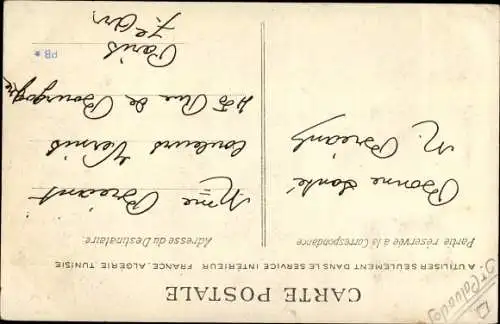 CARTE POSTALE
A UTILISER SEULEMENT DANS LE SERVICE INTÉRIEUR FRANCE, ALGÉRIE TUNISIE
Partie réservée à la Correspondance
Bonne Santé
M. Bréant
Adresse du Destinataire.
Mme Breant
Couleurs Vernis
Rue de Bourgogne
Paris
7e Arr.
PB *